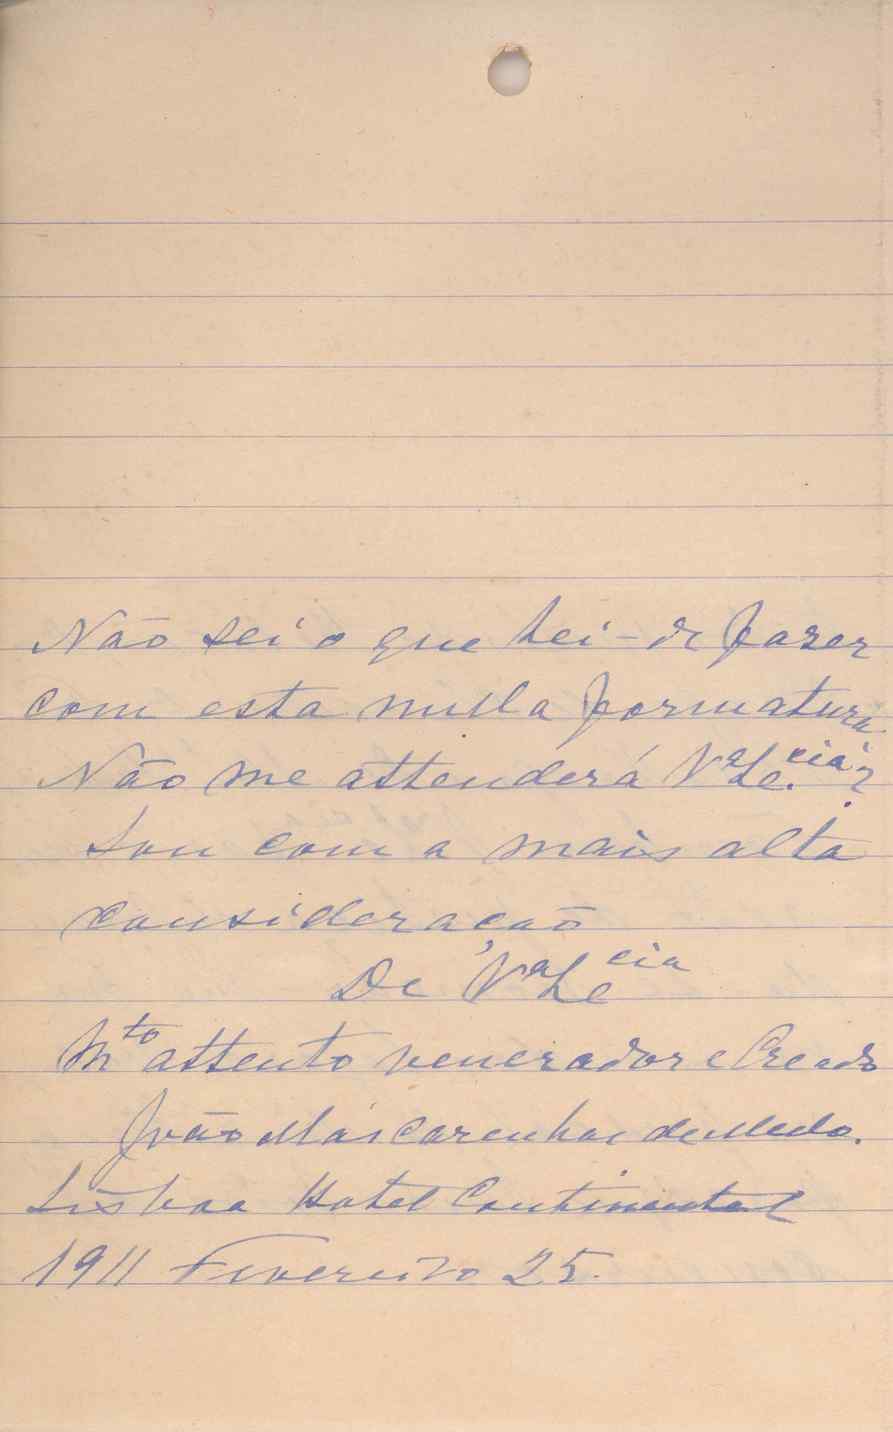 Não sei o que hei-de fazer
com esta nulla formatura.
Não me attenderá Vª Exᶜⁱᵃ?
Sou com a mais alta
consideração
De Vª Exᶜⁱᵃ
Mᵗᵒ attento venerador e Creado
João Mascarenhas de Mello.
Lisboa Hotel Continental
1911 Fevereiro 25.